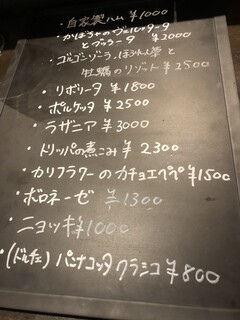 ・自家製ハム ¥1000
・かぼちゃのヴェルッタータ
とブッラータ ¥2000
・ゴルゴンゾーラ、ほうれん草と
牡蠣のリゾット ¥2500
・リボリータ ¥1800
・ポルケッタ ¥2500
・ラザニア ¥3000
・トリッパの煮こみ ¥2300
・カリフラワーのカチョエペペ ¥1500
・ボロネーゼ ¥1300
・ニョッキ ¥1000
・(ドルチェ) パンナコッタ クラシコ ¥800